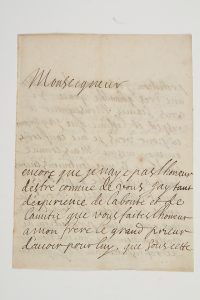 Monseigneur
encore que je naye pas lhonneur
destre connue de vous jay tant
dexperience de la bonte et de
lamitie que vous faites lhonneur
a mon frere le grand prieur
davoir pour luy, que sous cette